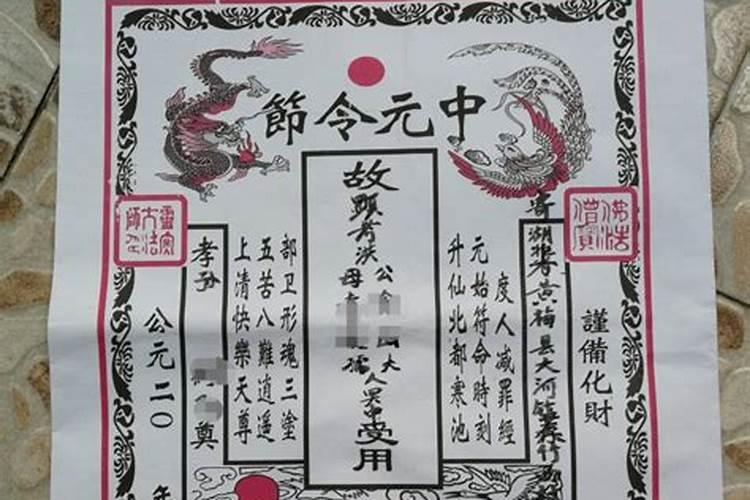 中元令節
佛法僧寶
謹備化財
寄湖北黄梅县大河镇
度人减罪經
元始符命時刻
升仙北都寒池
故顯考洪公大人
母孺人
受用
部卫形魂三塗
五苦八難逍遥
上清快樂天尊
孝孙
奠
公元二〇年